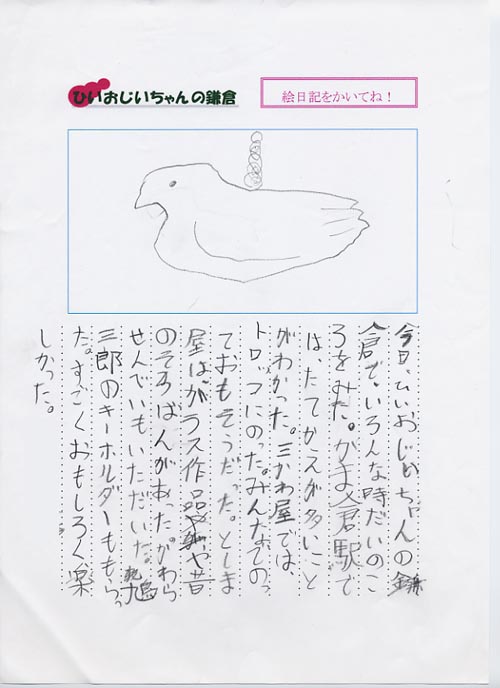 ひいおじいちゃんの鎌倉
絵日記をかいてね！
今日、ひいおじいちゃんの鎌
倉で、いろんな時だいのこ
ろをみた。かま倉駅で
は、たてかえが多いこと
がわかった。三かわ屋では、
トロッコにのった。みんなでのっ
ておもそうだった。としま
屋は、ガラス作品や昔
のそろばんがあった。かわら
せんべいもいただいた。鳩
三郎のキーホルダーももらっ
た。すごくおもしろく楽
しかった。